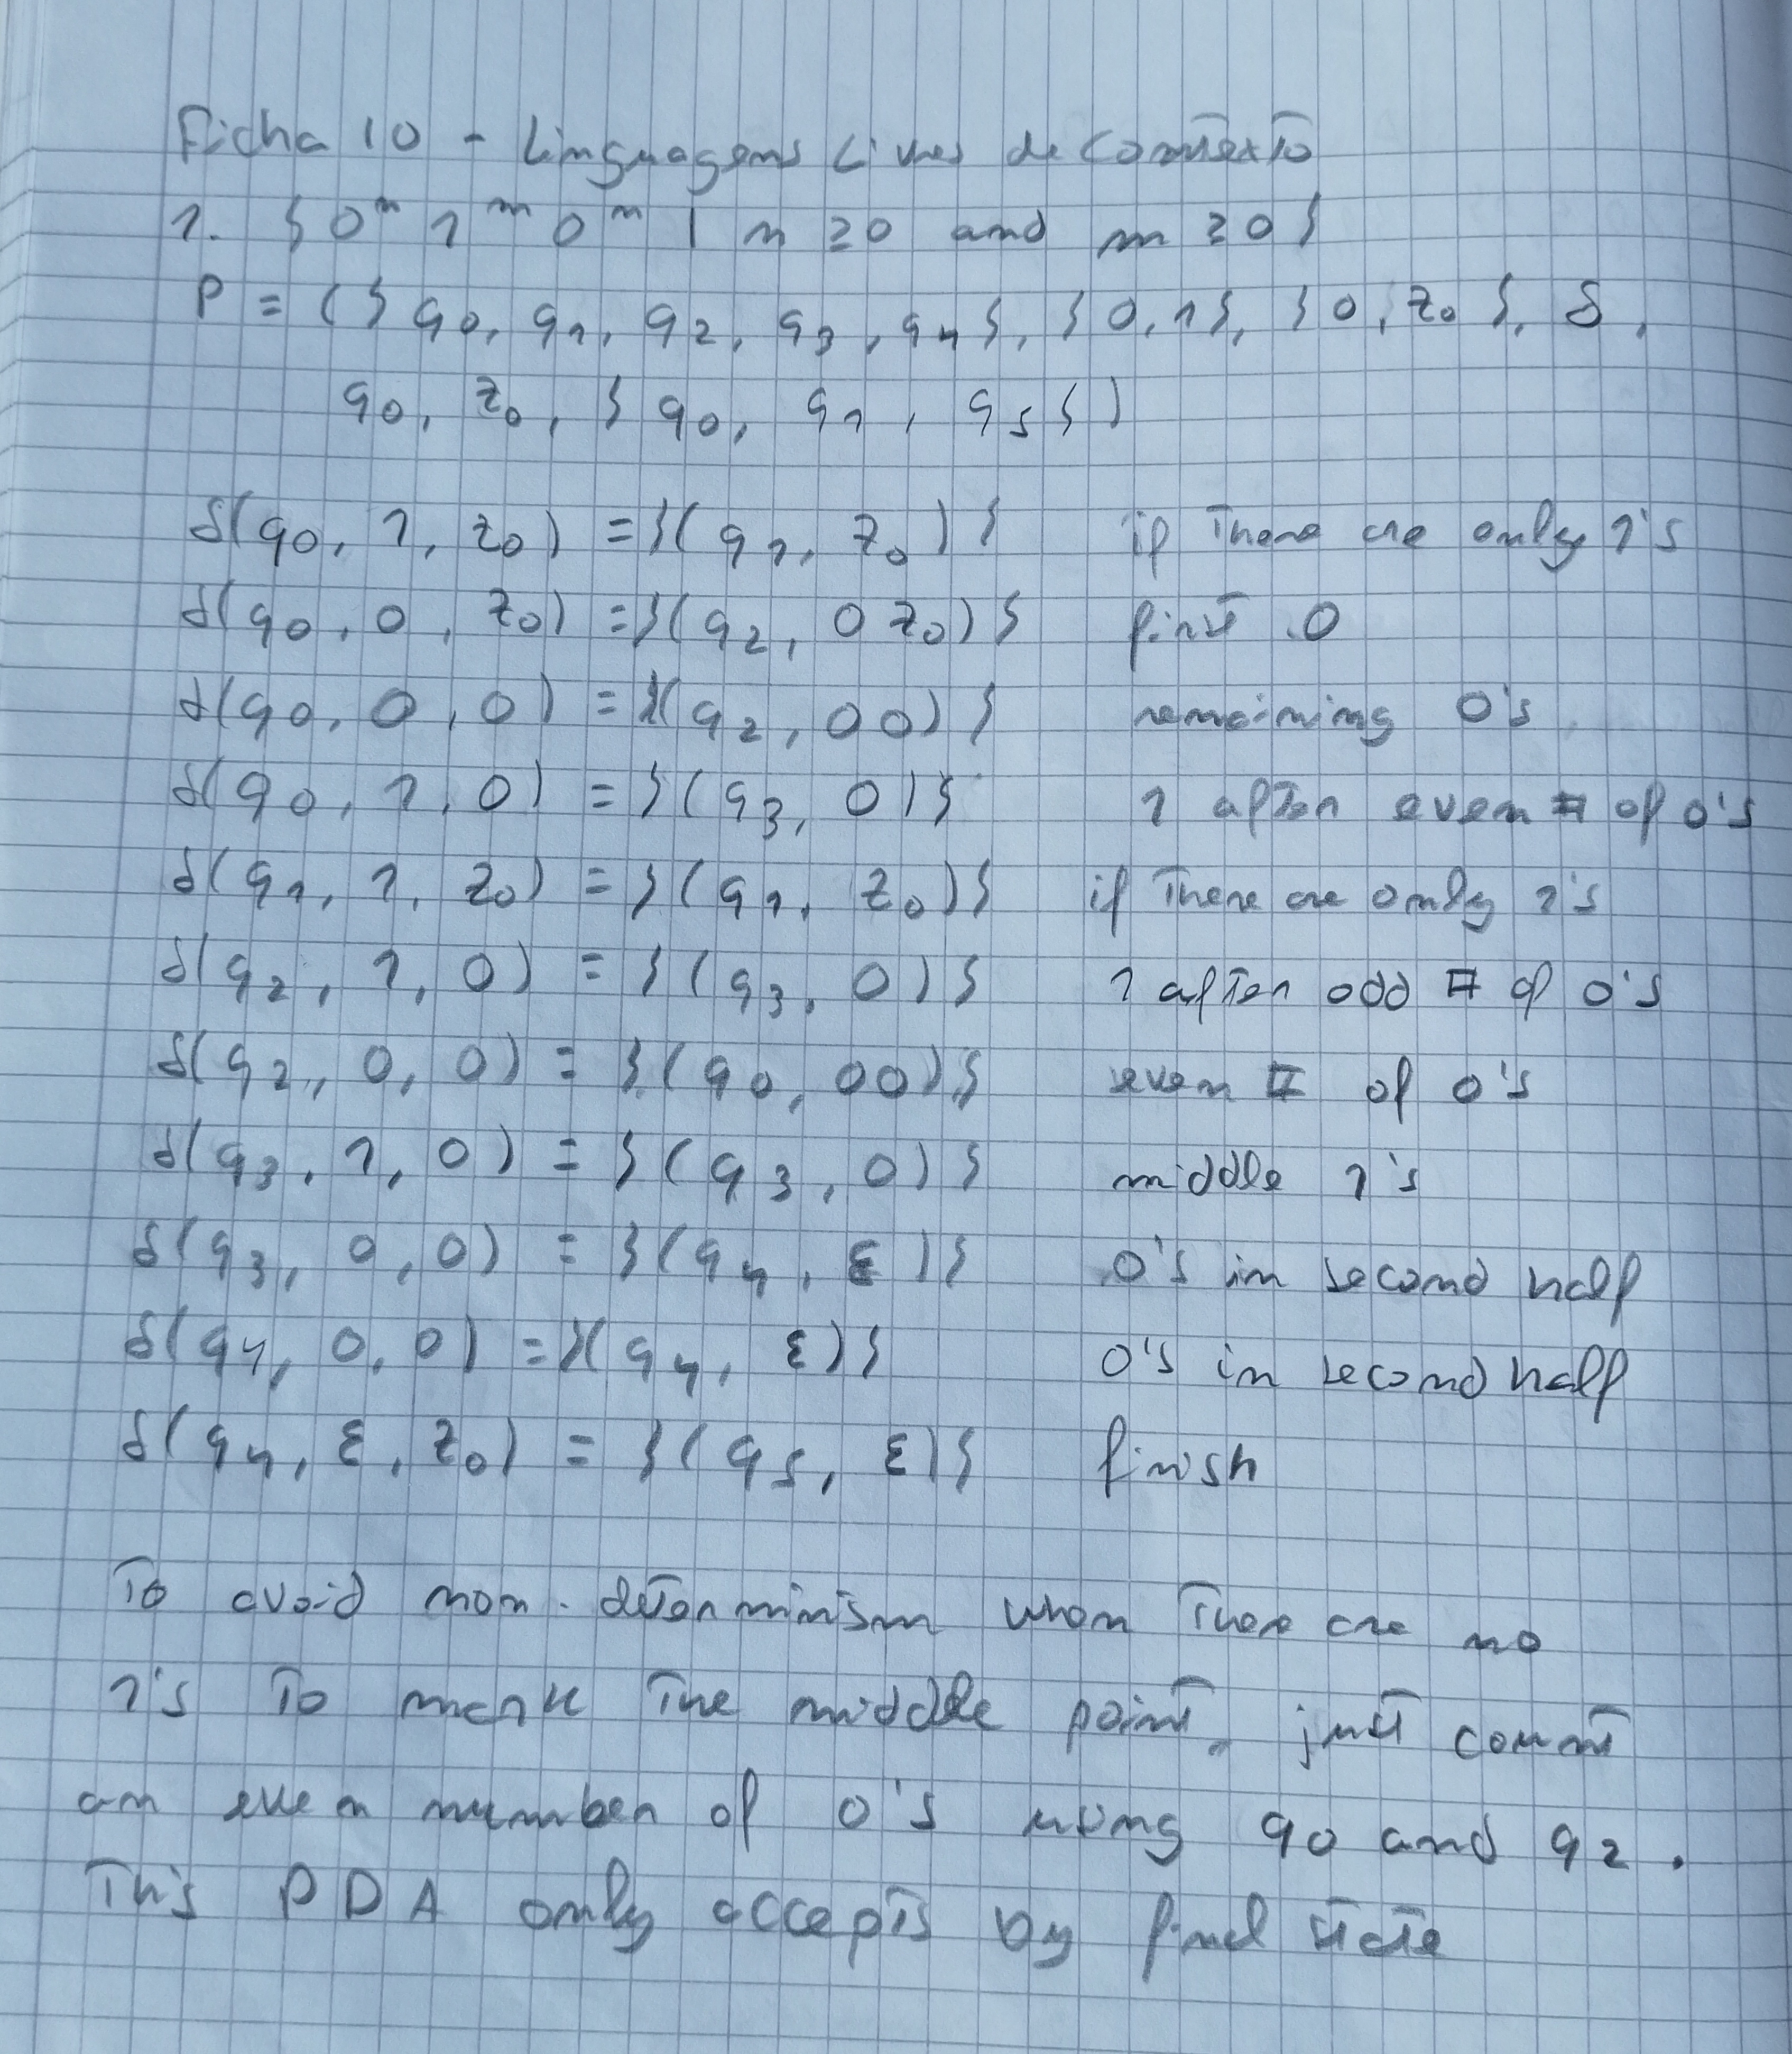 Ficha 10 - Linguagens Livres de Contexto
1. {0ⁿ 1ᵐ 0ⁿ | n ≥0 and m ≥0}
P = ({q0, q1, q2, q3, q4}, {0,1}, {0, z0}, δ,
q0, z0, {q0, q1, q5})
δ(q0, 1, z0) = {(q1, z0)} if there are only 1's
δ(q0, 0, z0) = {(q2, 0z0)} first 0
δ(q0, 0, 0) = {(q2, 00)} remaining 0's
δ(q0, 1, 0) = {(q3, 0)} 1 after even # of 0's
δ(q1, 1, z0) = {(q1, z0)} if there are only 1's
δ(q2, 1, 0) = {(q3, 0)} 1 after odd # of 0's
δ(q2, 0, 0) = {(q0, 00)} even # of 0's
δ(q3, 1, 0) = {(q3, 0)} middle 1's
δ(q3, 0, 0) = {(q4, ε)} 0's in second half
δ(q4, 0, 0) = {(q4, ε)} 0's in second half
δ(q4, ε, z0) = {(q5, ε)} finish
To avoid non-determinism when there are no
1's to mark the middle point, just count
an even number of 0's using q0 and q2.
This PDA only accepts by final state